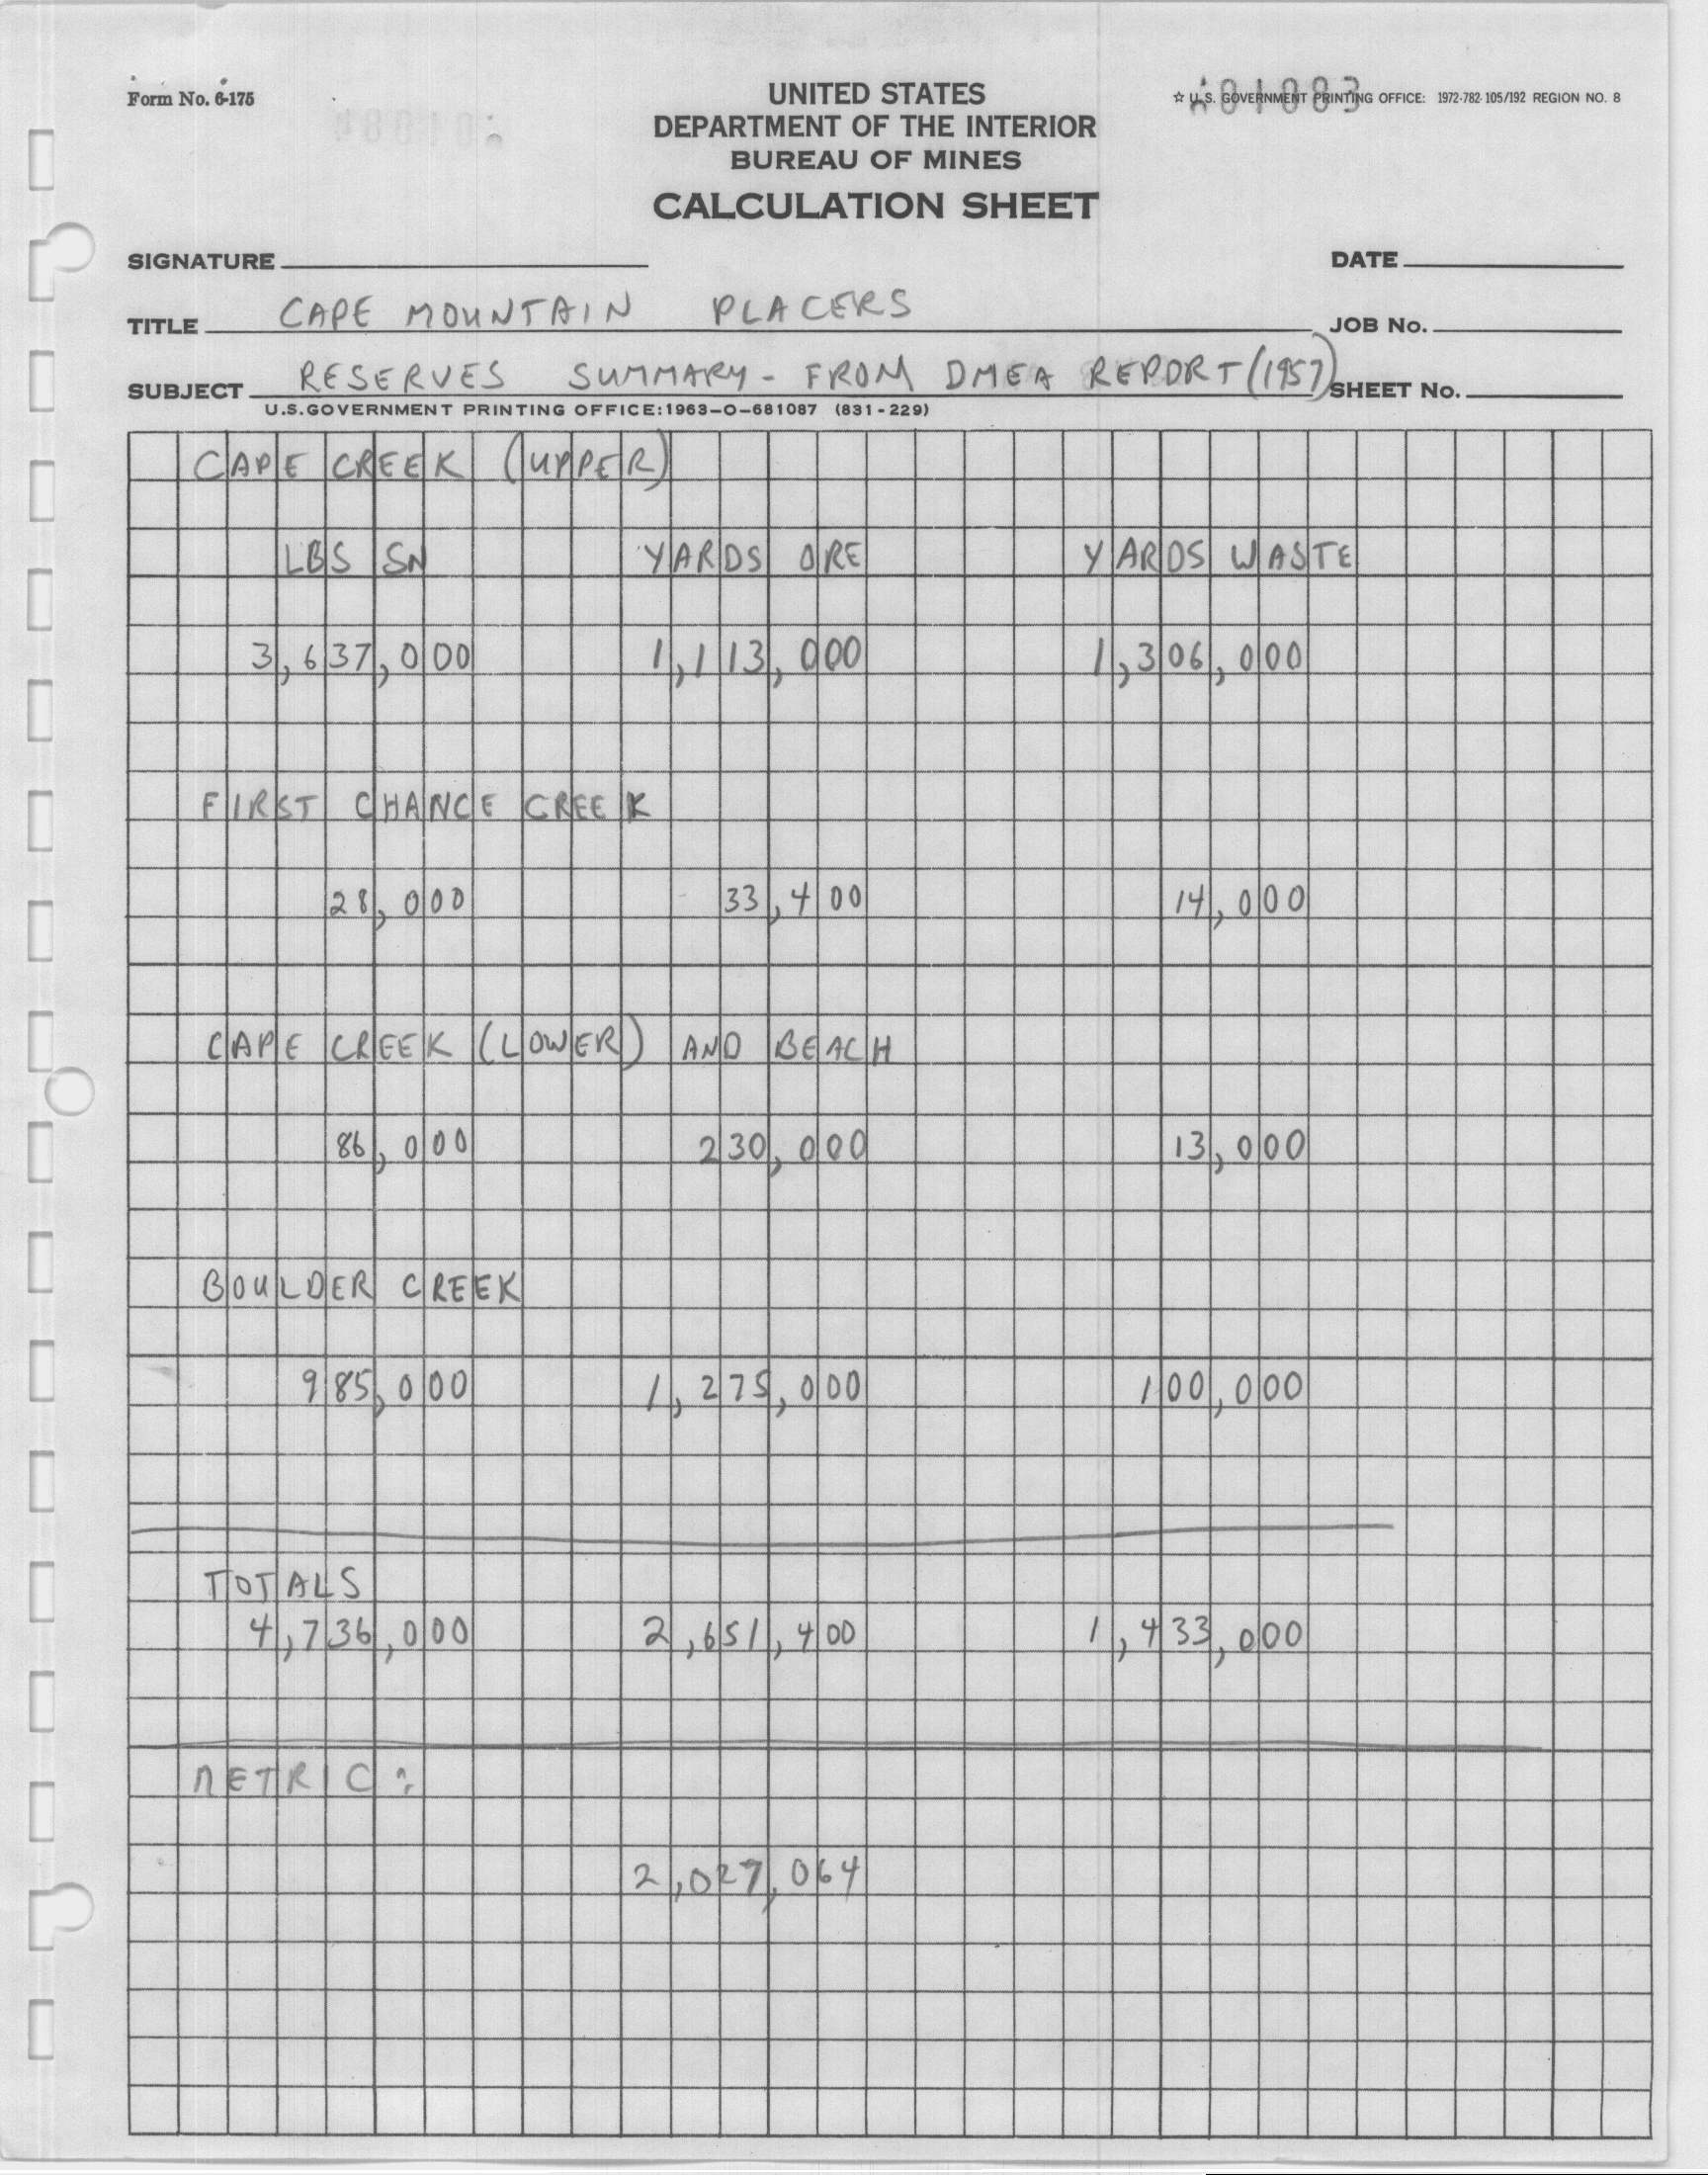 Form No. 6-175
UNITED STATES
DEPARTMENT OF THE INTERIOR
BUREAU OF MINES
CALCULATION SHEET
☆ U.S. GOVERNMENT PRINTING OFFICE: 1972-782-105/192 REGION NO. 8
SIGNATURE
DATE
TITLE CAPE MOUNTAIN PLACERS
JOB No.
SUBJECT RESERVES SUMMARY - FROM DMEA REPORT (1957)
SHEET No.
U.S.GOVERNMENT PRINTING OFFICE:1963-O-681087 (831-229)
CAPE CREEK (UPPER)
LBS SN YARDS ORE YARDS WASTE
3,637,000 1,113,000 1,306,000
FIRST CHANCE CREEK
28,000 33,400 14,000
CAPE CREEK (LOWER) AND BEACH
86,000 230,000 13,000
BOULDER CREEK
985,000 1,275,000 100,000
TOTALS
4,736,000 2,651,400 1,433,000
METRIC:
2,027,064